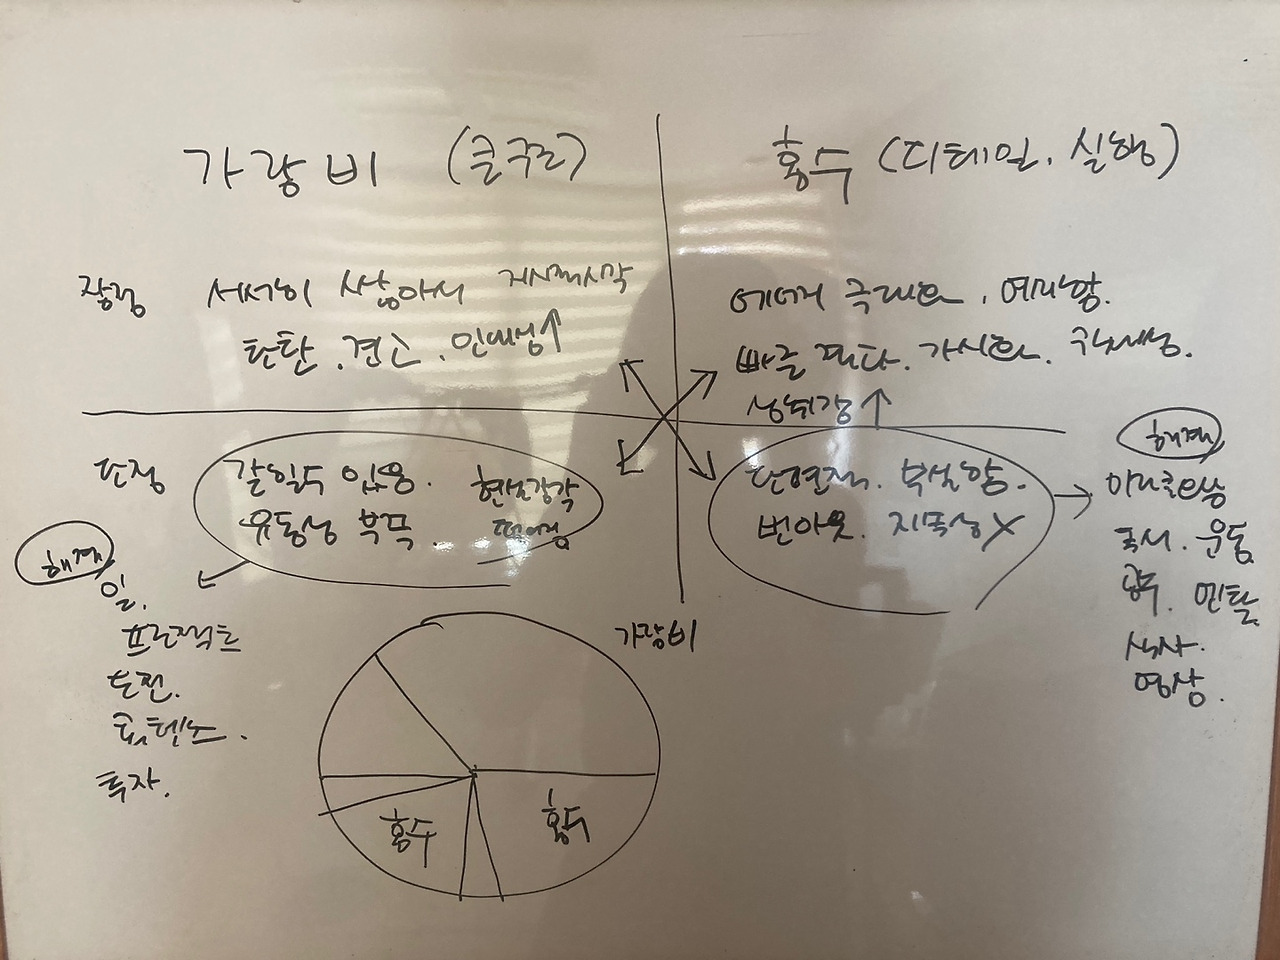 가랑비 (큰구조)
홍수 (디테일. 실행)
장점
서서히 쌓아서 거시적시각
탄탄. 견고. 인내심↑
에너지 극대화. 여기향.
빠른 판단. 가시화. 구체성.
성취감↑
단점
갈일두 있음. 현실감각
유동성 부족. 떨어짐
단편적. 부실함.
번아웃. 지속성X
해결
일.
프로젝트
도전.
콘텐츠.
투자.
해결
아티클 요약
독서. 운동
공부. 멘탈
식사.
명상.
가랑비
홍수
홍수